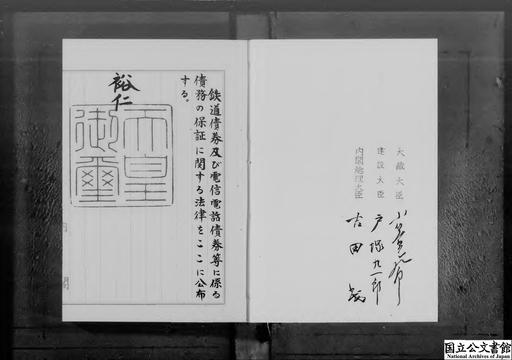 鉄道債券及び電信電話債券等に係る
債務の保証に関する法律をここに公布
する。
裕仁
天皇
御璽
大蔵大臣
建設大臣 戸塚九一郎
内閣総理大臣 吉田茂
国立公文書館
National Archives of Japan